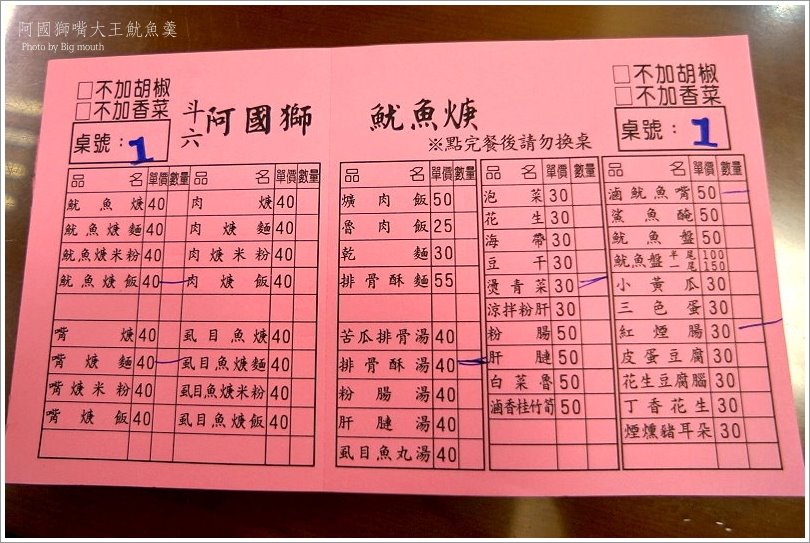 阿國獅嘴大王魷魚羹
Photo by Big mouth
□不加胡椒
□不加香菜
桌號：1
斗六阿國獅
魷魚焿
※點完餐後請勿換桌
□不加胡椒
□不加香菜
桌號：1
品名 單價 數量 品名 單價 數量
魷魚焿 40 肉焿 40
魷魚焿麵 40 肉焿麵 40
魷魚焿米粉 40 肉焿米粉 40
魷魚焿飯 40 肉焿飯 40
嘴焿 40 虱目魚焿 40
嘴焿麵 40 虱目魚焿麵 40
嘴焿米粉 40 虱目魚焿米粉 40
嘴焿飯 40 虱目魚焿飯 40
品名 單價 數量
爌肉飯 50
魯肉飯 25
乾麵 30
排骨酥麵 55
苦瓜排骨湯 40
排骨酥湯 40
粉腸湯 40
肝腱湯 40
虱目魚丸湯 40
品名 單價 數量
泡菜 30
花生 30
海帶 30
豆干 30
燙青菜 30
涼拌粉肝 30
粉腸 50
肝腱 50
白菜魯 50
滷香桂竹筍 50
品名 單價 數量
滷魷魚嘴 50
鯊魚醃 50
魷魚盤 50
魷魚盤 半尾 100
一尾 150
小黃瓜 30
三色蛋 30
紅煙腸 30
皮蛋豆腐 30
花生豆腐腦 30
丁香花生 30
煙燻豬耳朵 30